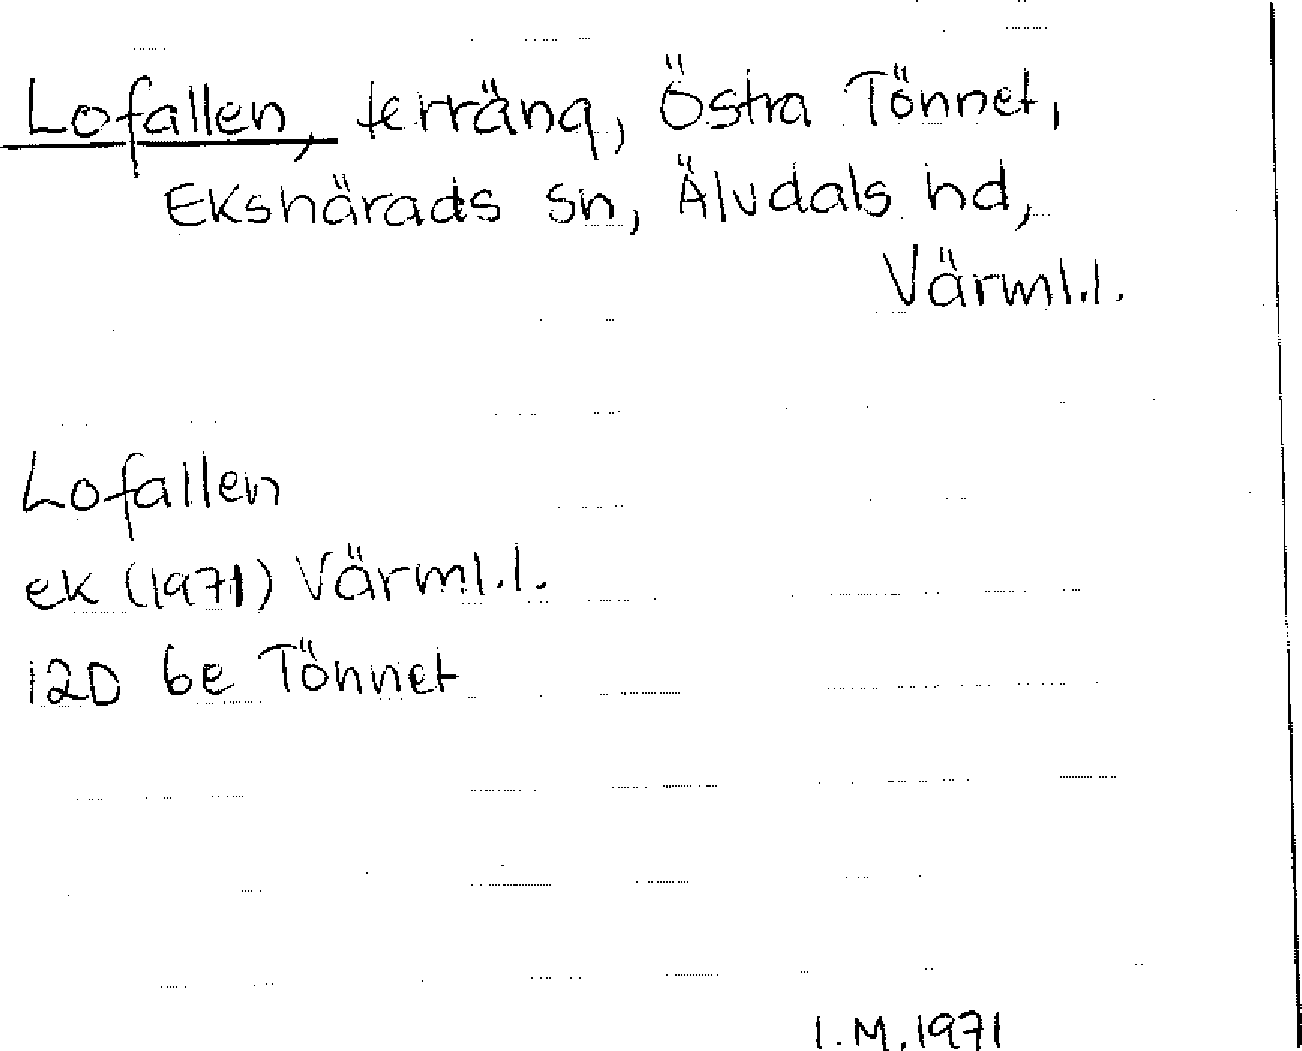 Lofallen, terräng, Östra Tönnet,
Ekshärads sn, Älvdals hd,
Värml.l.
Lofallen
ek (1971) Värml.l.
12D 6e Tönnet
I.M.1971